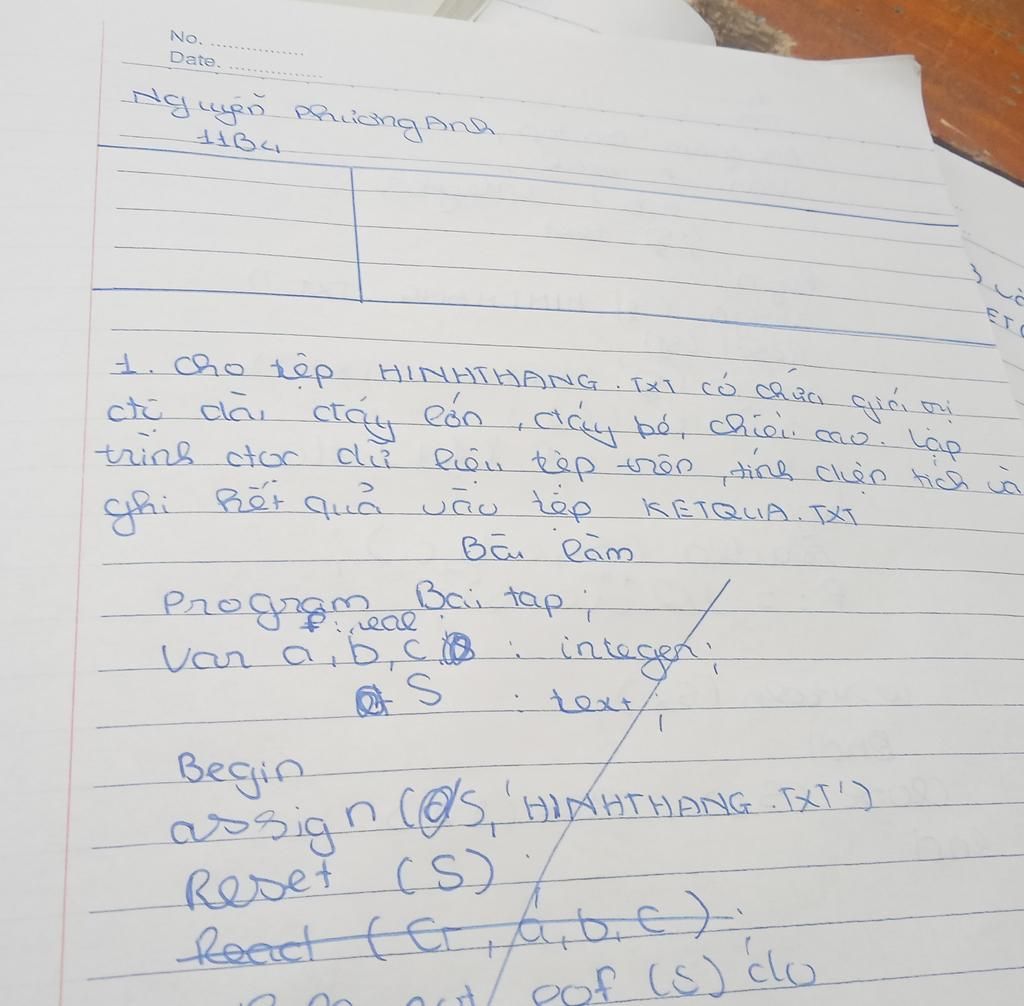 No. ..................
Date. ....................
Nguyễn Phương Anh
11B4
1. Cho tệp HINHTHANG.TXT có chứa giá trị
độ dài đáy lớn, đáy bé, chiều cao. Lập
trình đọc dữ liệu tệp trên, tính diện tích và
ghi kết quả vào tệp KETQUA.TXT
Bài làm
Program Bai tap;
P: real
Var a, b, c : integer;
S : text;
Begin
assign (S, 'HINHTHANG.TXT')
Reset (S)
Read (G, a, b, c);
not eof (S) do